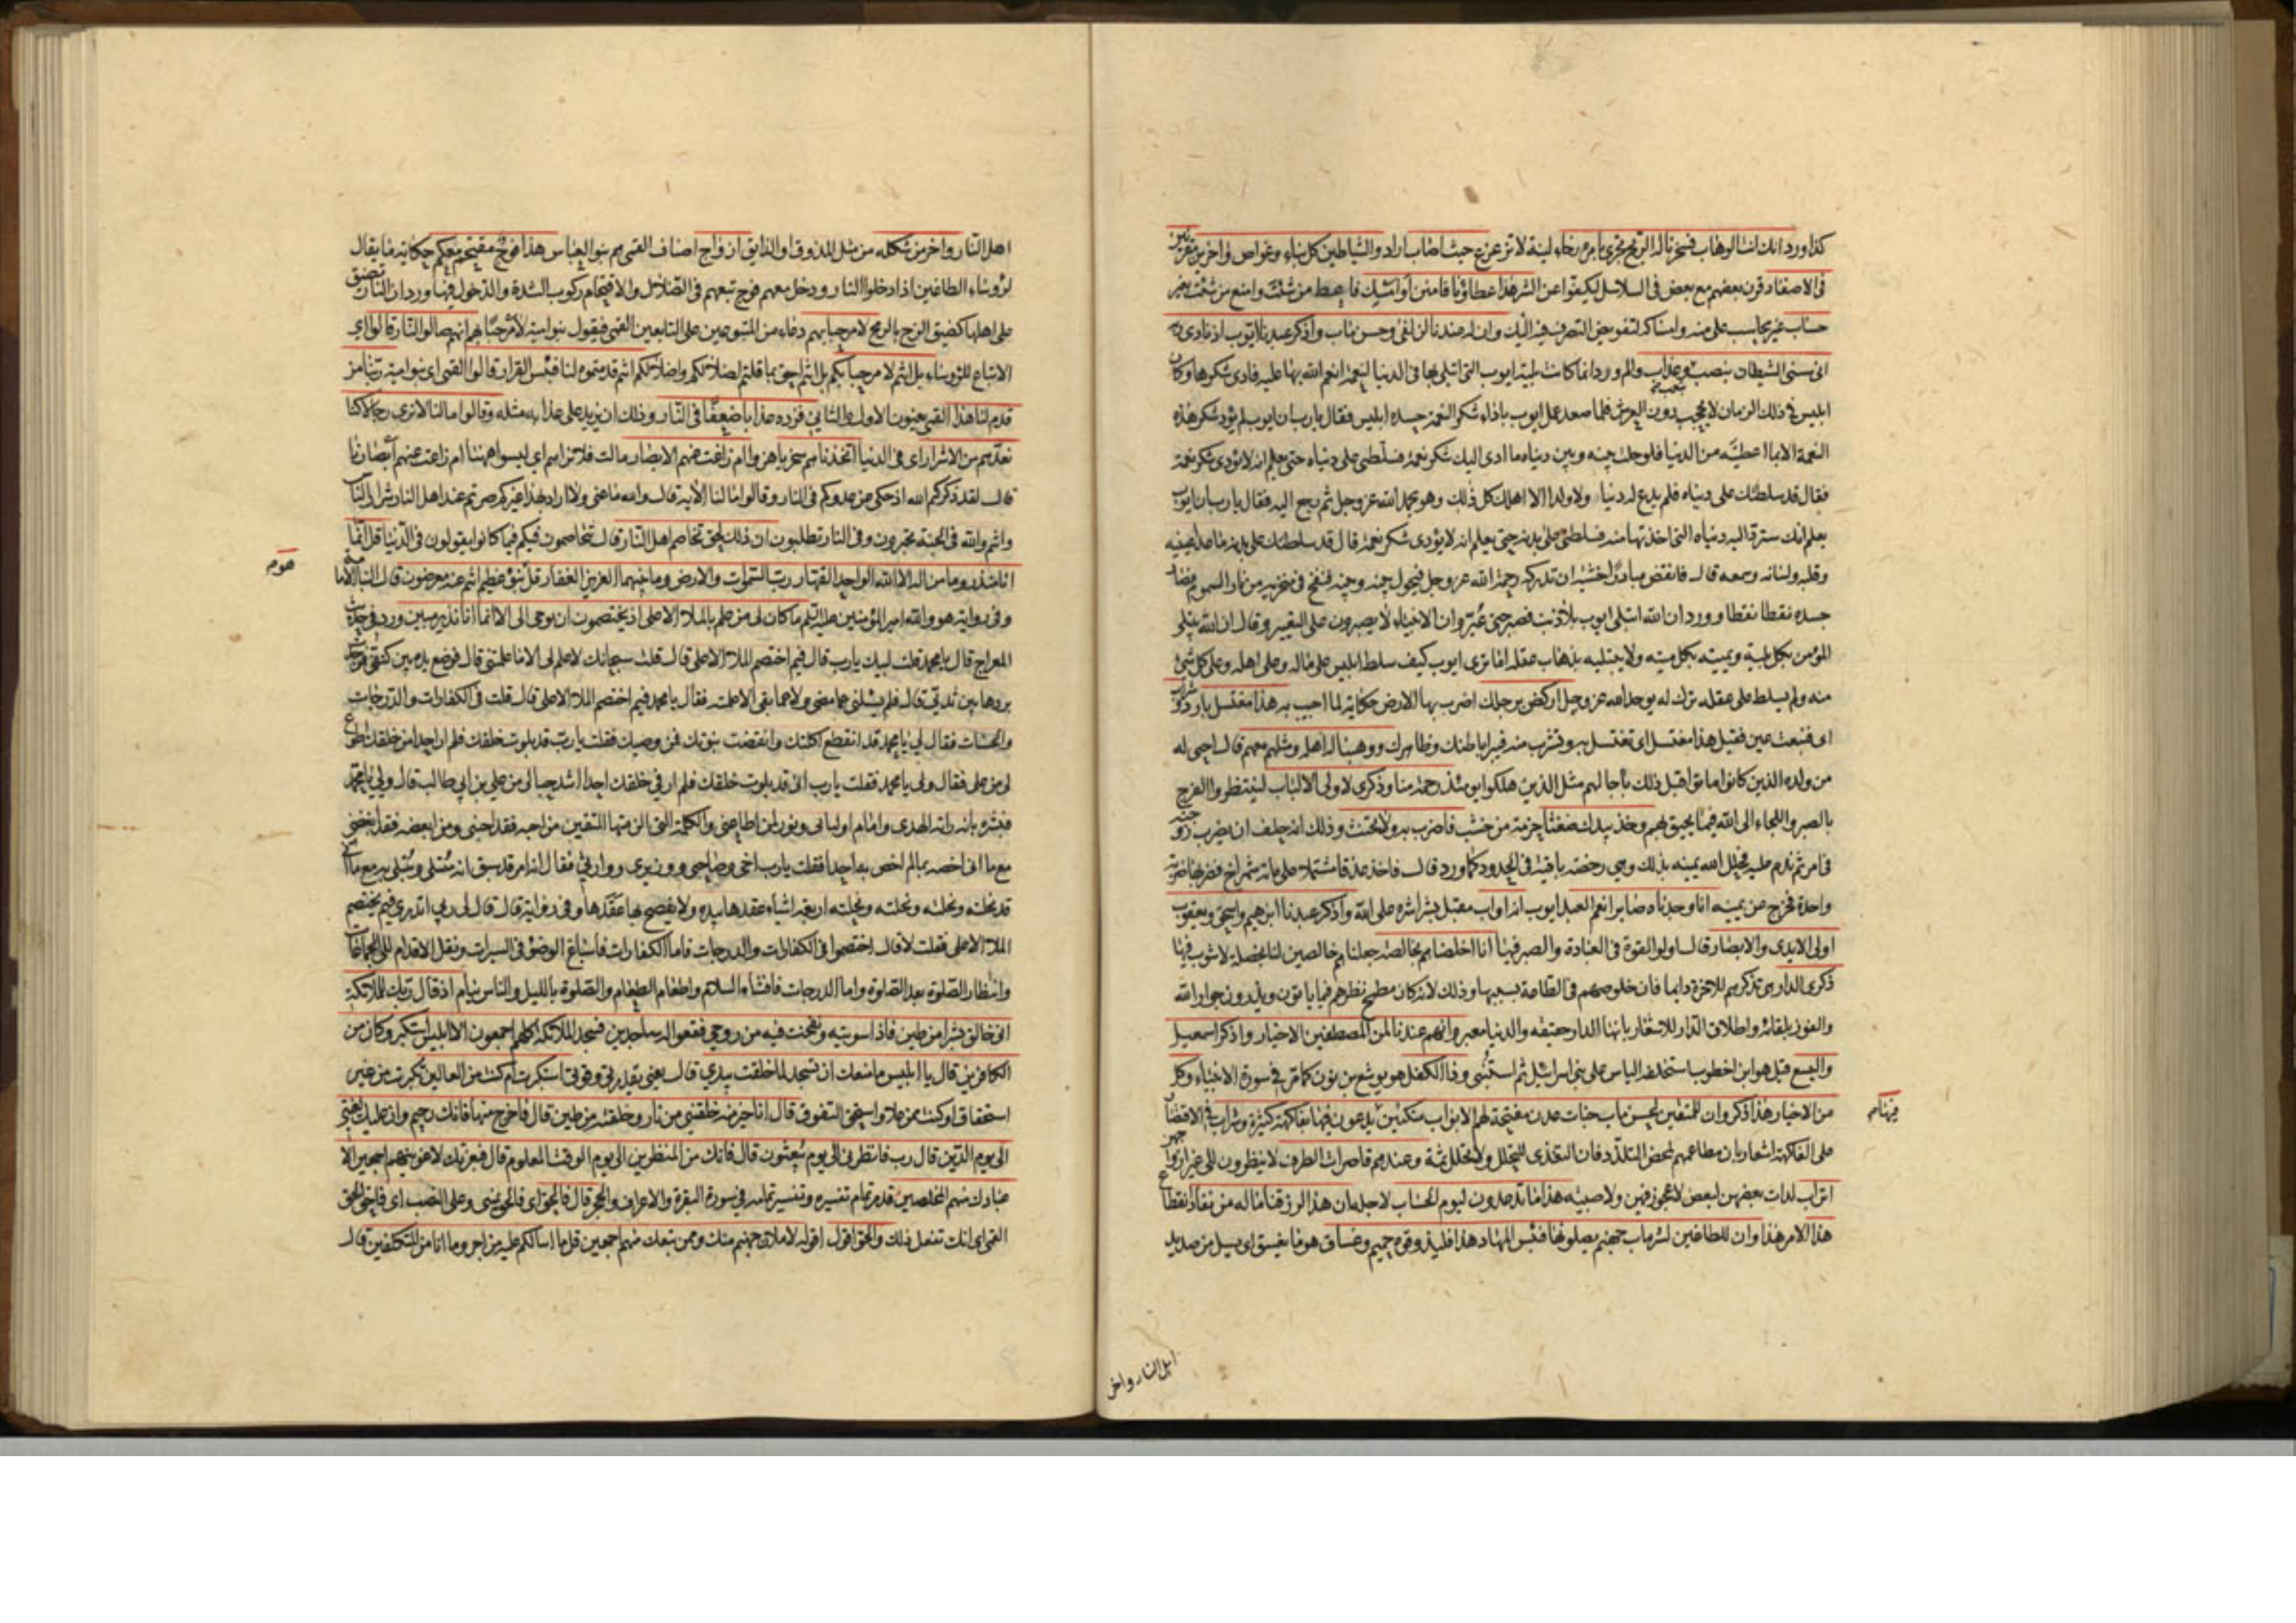 كذا ورد انك انت الوهاب فسخرنا له الريح تجري بامره رخاء لينة لا تزعزع حيث اصاب اراد والشياطين كل بناء وغواص واخرين مقرنين
في الاصفاد قرن بعضهم مع بعض في السلاسل ليكفوا عن الشر هذا عطاؤنا فامنن او امسك فاعط من شئت وامنع من شئت بغير
حساب غير محاسب على منه وامساكه لتفويض التصرف فيه اليك وان له عندنا لزلفى وحسن ماب واذكر عبدنا ايوب اذ نادى ربه
اني مسني الشيطان بنصب وعذاب والم ورد انما كانت بلية ايوب التي ابتلي بها في الدنيا لنعمة انعم الله بها عليه فادى شكرها وكان
ابليس في ذلك الزمان لا يحجب دون العرش فلما صعد عمل ايوب باداء شكر النعمة حسده ابليس فقال يا رب ان ايوب لم يؤد شكر هذه
النعمة الا بما اعطيته من الدنيا فلو حلت بينه وبين دنياه ما ادى اليك شكر نعمة فسلطني على دنياه حتى تعلم انه لا يؤدي شكر نعمة
فقال قد سلطتك على دنياه فلم يدع له دنيا ولا ولدا الا اهلك كل ذلك وهو يحمد الله عز وجل ثم رجع اليه فقال يا رب ان ايوب
يعلم انك سترد اليه دنياه التي اخذتها منه فسلطني على بدنه حتى تعلم انه لا يؤدي شكر نعمة قال قد سلطتك على بدنه ما عدا عينيه
وقلبه ولسانه وسمعه قال فانقض مبادرا خشية ان تدركه رحمة الله عز وجل فيحول بينه وبينه فنفخ في منخريه من نار السموم فصار
جسده نقطا نقطا وورد ان الله ابتلى ايوب بلا ذنب فصبر حتى عير وان الانبياء لا يصبرون على التعيير وقال ان الله يبتلي
المؤمن بكل بلية ويميته بكل ميتة ولا يبتليه بذهاب عقله اما ترى ايوب كيف سلط ابليس على ماله وعلى اهله وعلى كل شئ
منه ولم يسلط على عقله ترك له يوحد الله عز وجل اركض برجلك اضرب بها الارض حكاية لما اجيب به هذا مغتسل بارد وشراب
اي فنبعت عين فقيل هذا مغتسل اي تغتسل به وتشرب منه فيبرا باطنك وظاهرك ووهبنا له اهله ومثلهم معهم قال احيى له
من ولده الذين كانوا ماتوا قبل ذلك باجالهم مثل الذين هلكوا يومئذ رحمة منا وذكرى لاولي الالباب لينتظروا الفرج
بالصبر واللجاء الى الله فيما يحيق بهم وخذ بيدك ضغثا حزمة من خشب فاضرب به ولا تحنث وذلك انه حلف ان يضرب زوجته
في امر ثم ندم عليه فحلل الله يمينه بذلك وهي رخصة باقية في الحدود كما ورد قال فاخذ عذقا مشتملا على مائة شمراخ فضربها ضربة
واحدة فخرج عن يمينه انا وجدناه صابرا نعم العبد ايوب انه اواب مقبل بشراشره على الله واذكر عبدنا ابرهيم واسحق ويعقوب
اولي الايدي والابصار قال اولو القوة في العبادة والصبر فيها انا اخلصناهم بخالصة جعلناهم خالصين لنا بخصلة لا شوب فيها
ذكرى الدار هي تذكرهم للاخرة دايما فان خلوصهم في الطاعة بسببها وذلك لانه كان مطمح نظرهم فيما ياتون ويذرون جوار الله
والفوز بلقائه واطلاق الدار للاشعار بانها الدار حقيقة والدنيا معبر وانهم عندنا لمن المصطفين الاخيار واذكر اسمعيل
واليسع قيل هو ابن اخطوب استخلفه الياس على بني اسرائيل ثم استنبئ وذا الكفل هو يوشع بن نون كما مر في سورة الانبياء وكل
من الاخيار هذا ذكر وان للمتقين لحسن ماب جنات عدن مفتحة لهم الابواب متكئين يدعون فيها بفاكهة كثيرة وشراب في الاقتصار
على الفاكهة اشعار بان مطاعمهم لمحض التلذذ فان التغذي للتحلل ولا تحلل ثمة وعندهم قاصرات الطرف لا ينظرون الى غير ازواجهن
اتراب لدات بعضهن لبعض لا عجوز فيهن ولا صبية هذا ما توعدون ليوم الحساب لاجله ان هذا لرزقنا ما له من نفاد انقطاع
هذا الامر هذا وان للطاغين لشر ماب جهنم يصلونها فبئس المهاد هذا فليذوقوه حميم وغساق هو ما يغسق اي يسيل من صديد
اهل النار واخر
اهل النار واخر من شكله من مثل المذوق او الذايق ازواج اصناف القمي هم بنو العباس هذا فوج مقتحم معكم حكاية ما يقال
لرؤساء الطاغين اذا دخلوا النار ودخل معهم فوج تبعهم في الضلال والاقتحام ركوب الشدة والدخول فيها وورد ان النار تضيق
على اهلها كضيق الزج بالرمح لا مرحبا بهم دعاء من المتبوعين على التابعين القمي فيقول بنو امية لا مرحبا بهم انهم صالوا النار قالوا اي
الاتباع للرؤساء بل انتم لا مرحبا بكم بل انتم احق بما قلتم لضلالكم واضلالكم انتم قدمتموه لنا فبئس القرار قالوا القمي اي بنو امية ربنا من
قدم لنا هذا القمي يعنون الاول والثاني فزده عذابا ضعفا في النار وذلك ان يزيد على عذابه مثله وقالوا ما لنا لا نرى رجالا كنا
نعدهم من الاشرار اي في الدنيا اتخذناهم سخريا هزوا ام زاغت عنهم الابصار مالت فلا تراهم اي ليسوا ههنا ام زاغت عنهم ابصارنا
قال لقد ذكركم الله اذ حكى عن عدوكم في النار وقالوا ما لنا الاية قال والله ما عنى ولا اراد بهذا غيركم صرتم عند اهل النار شرار الناس
وانتم والله في الجنة تحبرون وفي النار تطلبون ان ذلك لحق تخاصم اهل النار قال يتخاصمون فيكم فيما كانوا يقولون في الدنيا قل انما
انا منذر وما من اله الا الله الواحد القهار رب السموات والارض وما بينهما العزيز الغفار قل هو نبؤ عظيم انتم عنه معرضون قال النبا الامامة
وفي رواية هو والله امير المؤمنين عليه السلم ما كان لي من علم بالملا الاعلى اذ يختصمون ان يوحى الي الا انما انا نذير مبين ورد في حديث
المعراج قال يا محمد قلت لبيك يا رب قال فيم اختصم الملا الاعلى قال قلت سبحانك لا علم لي الا ما علمتني قال فوضع يده بين كتفي فوجدت
بردها بين ثديي قال فلم يسئلني عما مضى ولا عما بقي الا علمته فقال يا محمد فيم اختصم الملا الاعلى قال قلت في الكفارات والدرجات
والحسنات فقال لي يا محمد قد انقطع اكلك وانقضت نبوتك فمن وصيك فقلت يا رب قد بلوت خلقك فلم ار احدا من خلقك اطوع
لي من علي فقال ولي يا محمد فقلت يا رب اني قد بلوت خلقك فلم ار في خلقك احدا اشد حبا لي من علي بن ابي طالب قال ولي يا محمد
فبشره بانه راية الهدى وامام اوليائي ونور لمن اطاعني والكلمة التي الزمتها المتقين من احبه فقد احبني ومن ابغضه فقد ابغضني
مع ما اني اخصه بما لم اخص به احدا فقلت يا رب اخي وصاحبي ووزيري ووارثي فقال انه امر قد سبق انه مبتلى ومبتلى به مع ما اني
قد نحلته ونحلته ونحلته ونحلته اربعة اشياء عقدها بيده ولا يفصح بها عقدها وفي رواية قال قال لي ربي اتدري فيم يختصم
الملا الاعلى فقلت لا قال اختصموا في الكفارات والدرجات فاما الكفارات فاسباغ الوضوء في السبرات ونقل الاقدام الى الجماعات
وانتظار الصلوة بعد الصلوة واما الدرجات فافشاء السلام واطعام الطعام والصلوة بالليل والناس نيام اذ قال ربك للملائكة
اني خالق بشرا من طين فاذا سويته ونفخت فيه من روحي فقعوا له ساجدين فسجد الملائكة كلهم اجمعون الا ابليس استكبر وكان من
الكافرين قال يا ابليس ما منعك ان تسجد لما خلقت بيدي قال يعني بقدرتي وقوتي استكبرت ام كنت من العالين تكبرت من غير
استحقاق او كنت ممن علا واستحق التفوق قال انا خير منه خلقتني من نار وخلقته من طين قال فاخرج منها فانك رجيم وان عليك لعنتي
الى يوم الدين قال رب فانظرني الى يوم يبعثون قال فانك من المنظرين الى يوم الوقت المعلوم قال فبعزتك لاغوينهم اجمعين الا
عبادك منهم المخلصين قد مر تمام تفسيره وتفسير تمامه في سورة البقرة والاعراف والحجر قال فالحق اي فالحق يميني وعلى النصب اي فاحق الحق
القمي اي انك تفعل ذلك والحق اقول اقوله لاملان جهنم منك وممن تبعك منهم اجمعين قل ما اسالكم عليه من اجر وما انا من المتكلفين قال